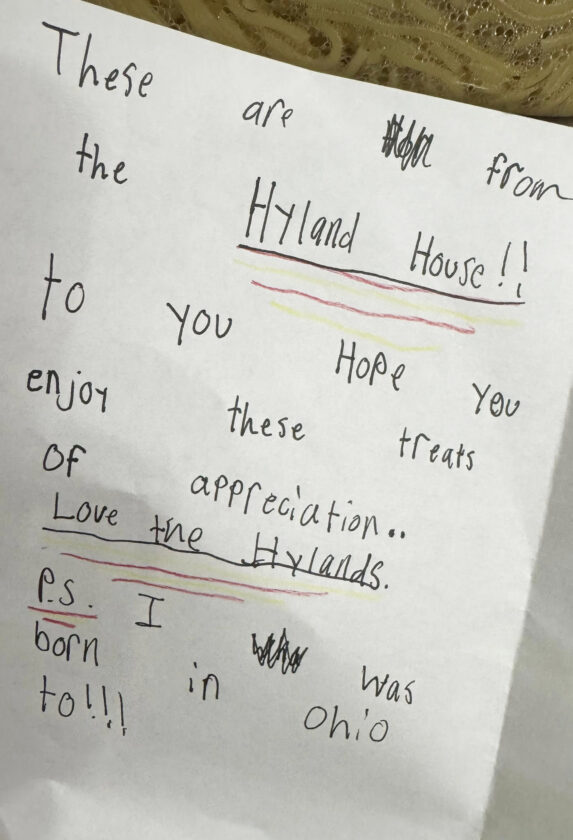 These are from
the Hyland House!!
to you Hope you
enjoy these treats
of appreciation..
Love the Hylands.
P.S. I was
born in Ohio
to!!!